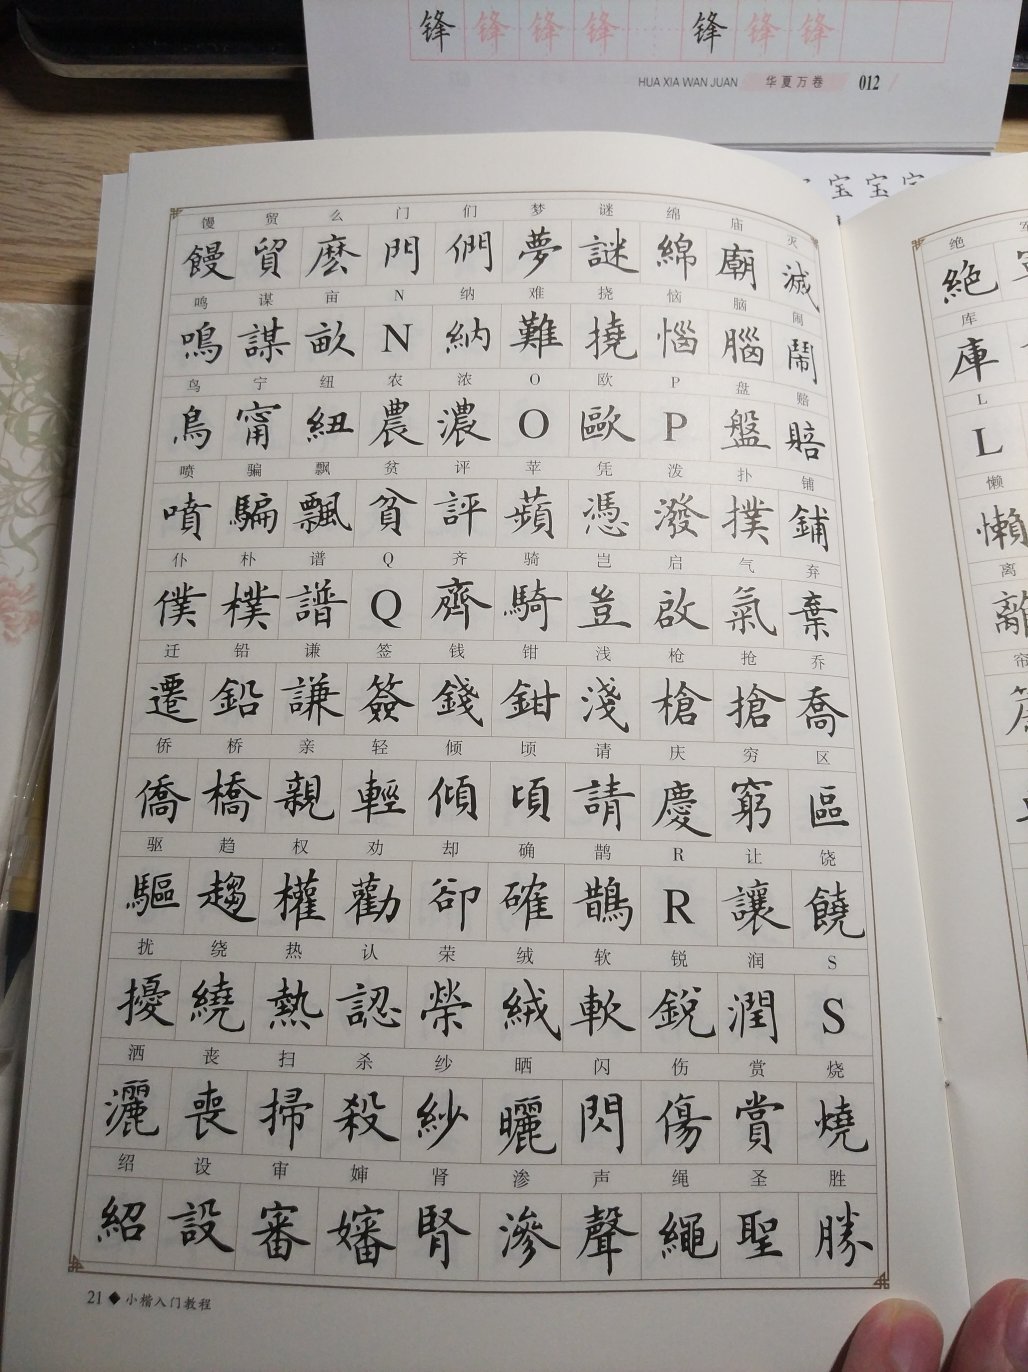 锋 锋 锋 锋 锋 锋 锋
HUA XIA WAN JUAN 华夏万卷 012
宝 宝
馒 贸 么 门 们 梦 谜 绵 庙 灭
饅 貿 麽 門 們 夢 謎 綿 廟 滅
鸣 谋 亩 N 纳 难 挠 恼 脑 闹
鳴 謀 畝 N 納 難 撓 惱 腦 鬧
鸟 宁 纽 农 浓 O 欧 P 盘 赔
鳥 甯 紐 農 濃 O 歐 P 盤 賠
喷 骗 飘 贫 评 苹 凭 泼 扑 铺
噴 騙 飄 貧 評 蘋 憑 潑 撲 鋪
仆 朴 谱 Q 齐 骑 岂 启 气 弃
僕 樸 譜 Q 齊 騎 豈 啟 氣 棄
迁 铅 谦 签 钱 钳 浅 枪 抢 乔
遷 鉛 謙 簽 錢 鉗 淺 槍 搶 喬
侨 桥 亲 轻 倾 顷 请 庆 穷 区
僑 橋 親 輕 傾 頃 請 慶 窮 區
驱 趋 权 劝 却 确 鹊 R 让 饶
驅 趨 權 勸 卻 確 鵲 R 讓 饒
扰 绕 热 认 荣 绒 软 锐 润 S
擾 繞 熱 認 榮 絨 軟 銳 潤 S
洒 丧 扫 杀 纱 晒 闪 伤 赏 烧
灑 喪 掃 殺 紗 曬 閃 傷 賞 燒
绍 设 审 婶 肾 渗 声 绳 圣 胜
紹 設 審 嬸 腎 滲 聲 繩 聖 勝
21 ◆ 小楷入门教程
绝
絕
库
庫
L
L
懒
懶
离
離
帘